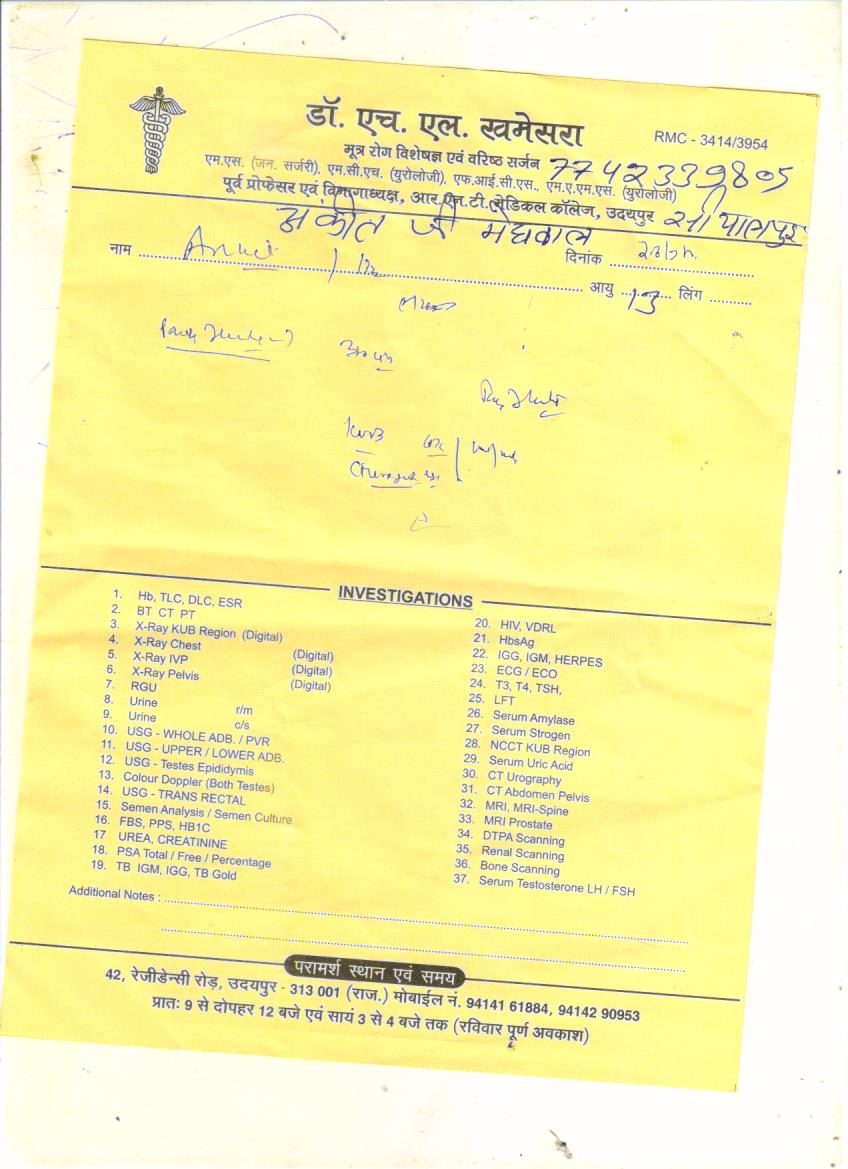 डॉ. एच. एल. खमेसरा
RMC - 3414/3954
मूत्र रोग विशेषज्ञ एवं वरिष्ठ सर्जन
7742339805
एम.एस. (जन. सर्जरी), एम.सी.एच. (युरोलोजी), एफ.आई.सी.एस., एम.ए.एम.एस. (युरोलॉजी)
पूर्व प्रोफेसर एवं विभागाध्यक्ष, आर.एन.टी. मेडिकल कॉलेज, उदयपुर
अंकीत जी मेघवाल
नाम Ankit
दिनांक
आयु 13 लिंग
KUB
INVESTIGATIONS
1. Hb, TLC, DLC, ESR
2. BT CT PT
3. X-Ray KUB Region (Digital)
4. X-Ray Chest (Digital)
5. X-Ray IVP (Digital)
6. X-Ray Pelvis (Digital)
7. RGU
8. Urine r/m
9. Urine c/s
10. USG - WHOLE ADB. / PVR
11. USG - UPPER / LOWER ADB.
12. USG - Testes Epididymis
13. Colour Doppler (Both Testes)
14. USG - TRANS RECTAL
15. Semen Analysis / Semen Culture
16. FBS, PPS, HB1C
17 UREA, CREATININE
18. PSA Total / Free / Percentage
19. TB IGM, IGG, TB Gold
20. HIV, VDRL
21. HbsAg
22. IGG, IGM, HERPES
23. ECG / ECO
24. T3, T4, TSH,
25. LFT
26. Serum Amylase
27. Serum Strogen
28. NCCT KUB Region
29. Serum Uric Acid
30. CT Urography
31. CT Abdomen Pelvis
32. MRI, MRI-Spine
33. MRI Prostate
34. DTPA Scanning
35. Renal Scanning
36. Bone Scanning
37. Serum Testosterone LH / FSH
Additional Notes :
परामर्श स्थान एवं समय
42, रेजीडेन्सी रोड़, उदयपुर - 313 001 (राज.) मोबाईल नं. 94141 61884, 94142 90953
प्रातः 9 से दोपहर 12 बजे एवं सायं 3 से 4 बजे तक (रविवार पूर्ण अवकाश)